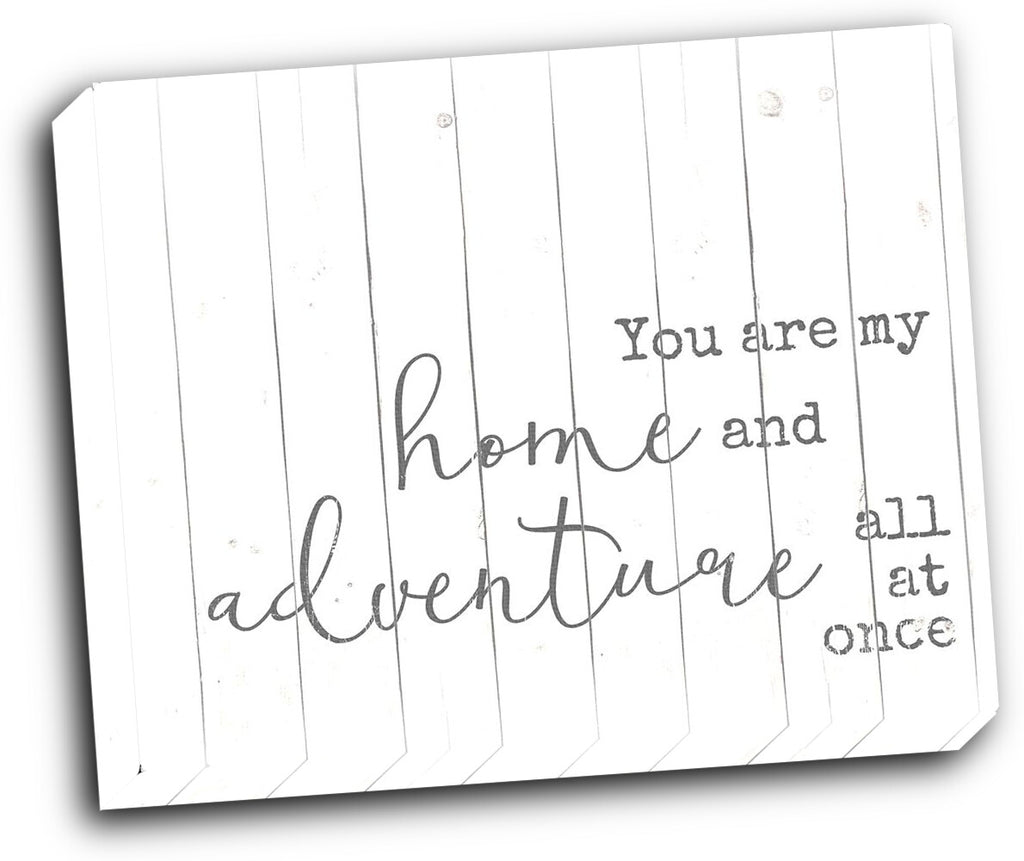 You are my
home and
adventure all
at
once